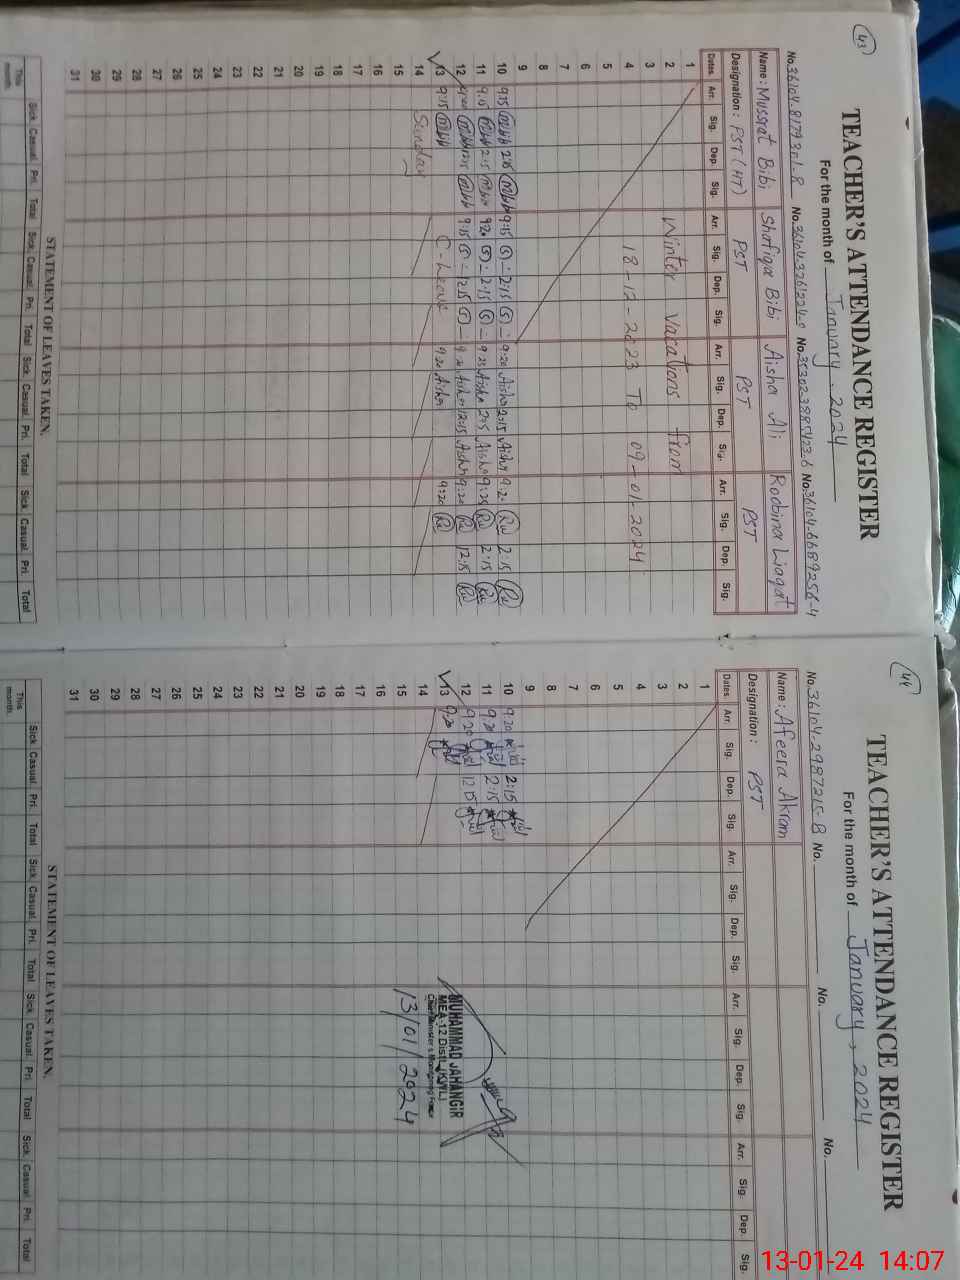 43
TEACHER'S ATTENDANCE REGISTER
For the month of January, 2024
Name: Mussrat Bibi Shafiqa Bibi Aisha Ali Roobina Liaqat
Designation: PST (HT) PST PST PST
Dates. Arr. Sig. Dep. Sig. Arr. Sig. Dep. Sig. Arr. Sig. Dep. Sig. Arr. Sig. Dep. Sig.
1
2 Winter vacations from
3
4 18-12-2023 To 09-01-2024
5
6
7
8
9
10 9:15 2:15 9:15 2:15 9:20 Aisha 2:15 Aisha 9:20 2:15
11 9:15 2:15 9:20 2:15 9:25 Aisha 2:15 Aisha 9:25 2:15
12 9:20 12:15 9:15 12:15 9:20 Aisha 12:15 Aisha 9:20 12:15
13 9:15 C-Leave 9:20 Aisha 9:20
14 Sunday
15
16
17
18
19
20
21
22
23
24
25
26
27
28
29
30
31
STATEMENT OF LEAVES TAKEN.
Sick. Casual. Pri. Total Sick. Casual. Pri. Total Sick. Casual. Pri. Total Sick. Casual. Pri. Total
This month.
44
TEACHER'S ATTENDANCE REGISTER
For the month of January, 2024
No. 36104-2987215-8 No. No. No.
Name: Afeera Akram
Designation: PST
Dates. Arr. Sig. Dep. Sig. Arr. Sig. Dep. Sig. Arr. Sig. Dep. Sig. Arr. Sig. Dep. Sig.
1
2
3
4
5
6
7
8
9
10 9:20 2:15
11 9:20 2:15
12 9:20 12:15
13 9:20
14
15
16
17
18
19
20
21
22
23
24
25
26
27
28
29
30
31
MUHAMMAD JAHANGIR
MEA-12 Distt. (KWL)
Chief Minister's Monitoring Force
13/01/2024
STATEMENT OF LEAVES TAKEN.
Sick. Casual. Pri. Total Sick. Casual. Pri. Total Sick. Casual. Pri. Total Sick. Casual. Pri. Total
This month.
13-01-24 14:07